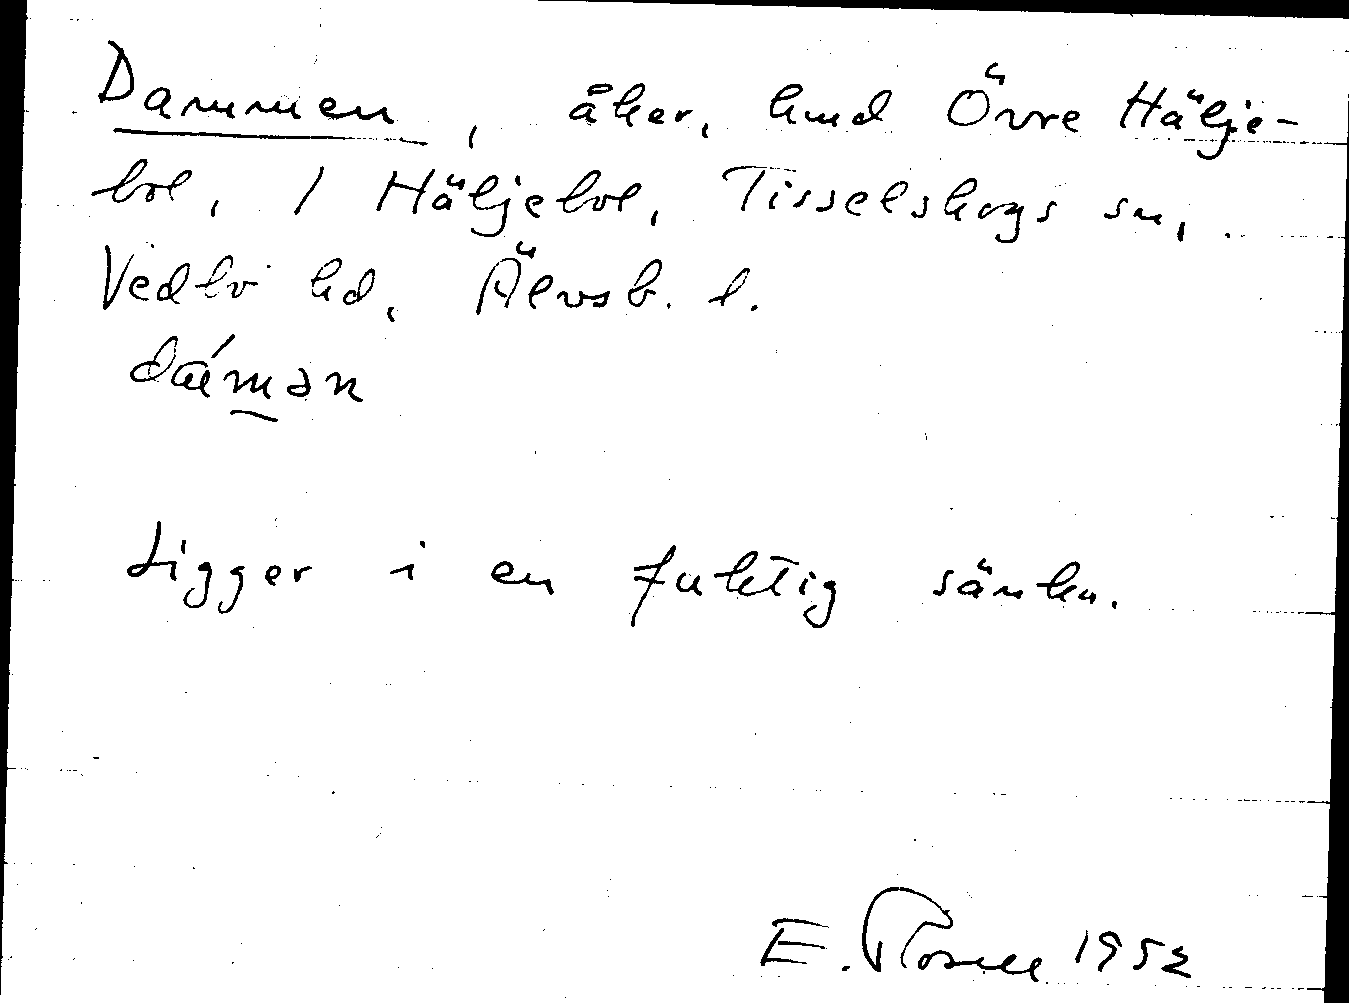 Dammen, åker, hmd Övre Hälje-
bol, 1 Häljebol, Tisselskogs sn,
Vedbo hd, Älvsb. l.
dámən
Ligger i en fuktig sänka.
E. Rosell 1952